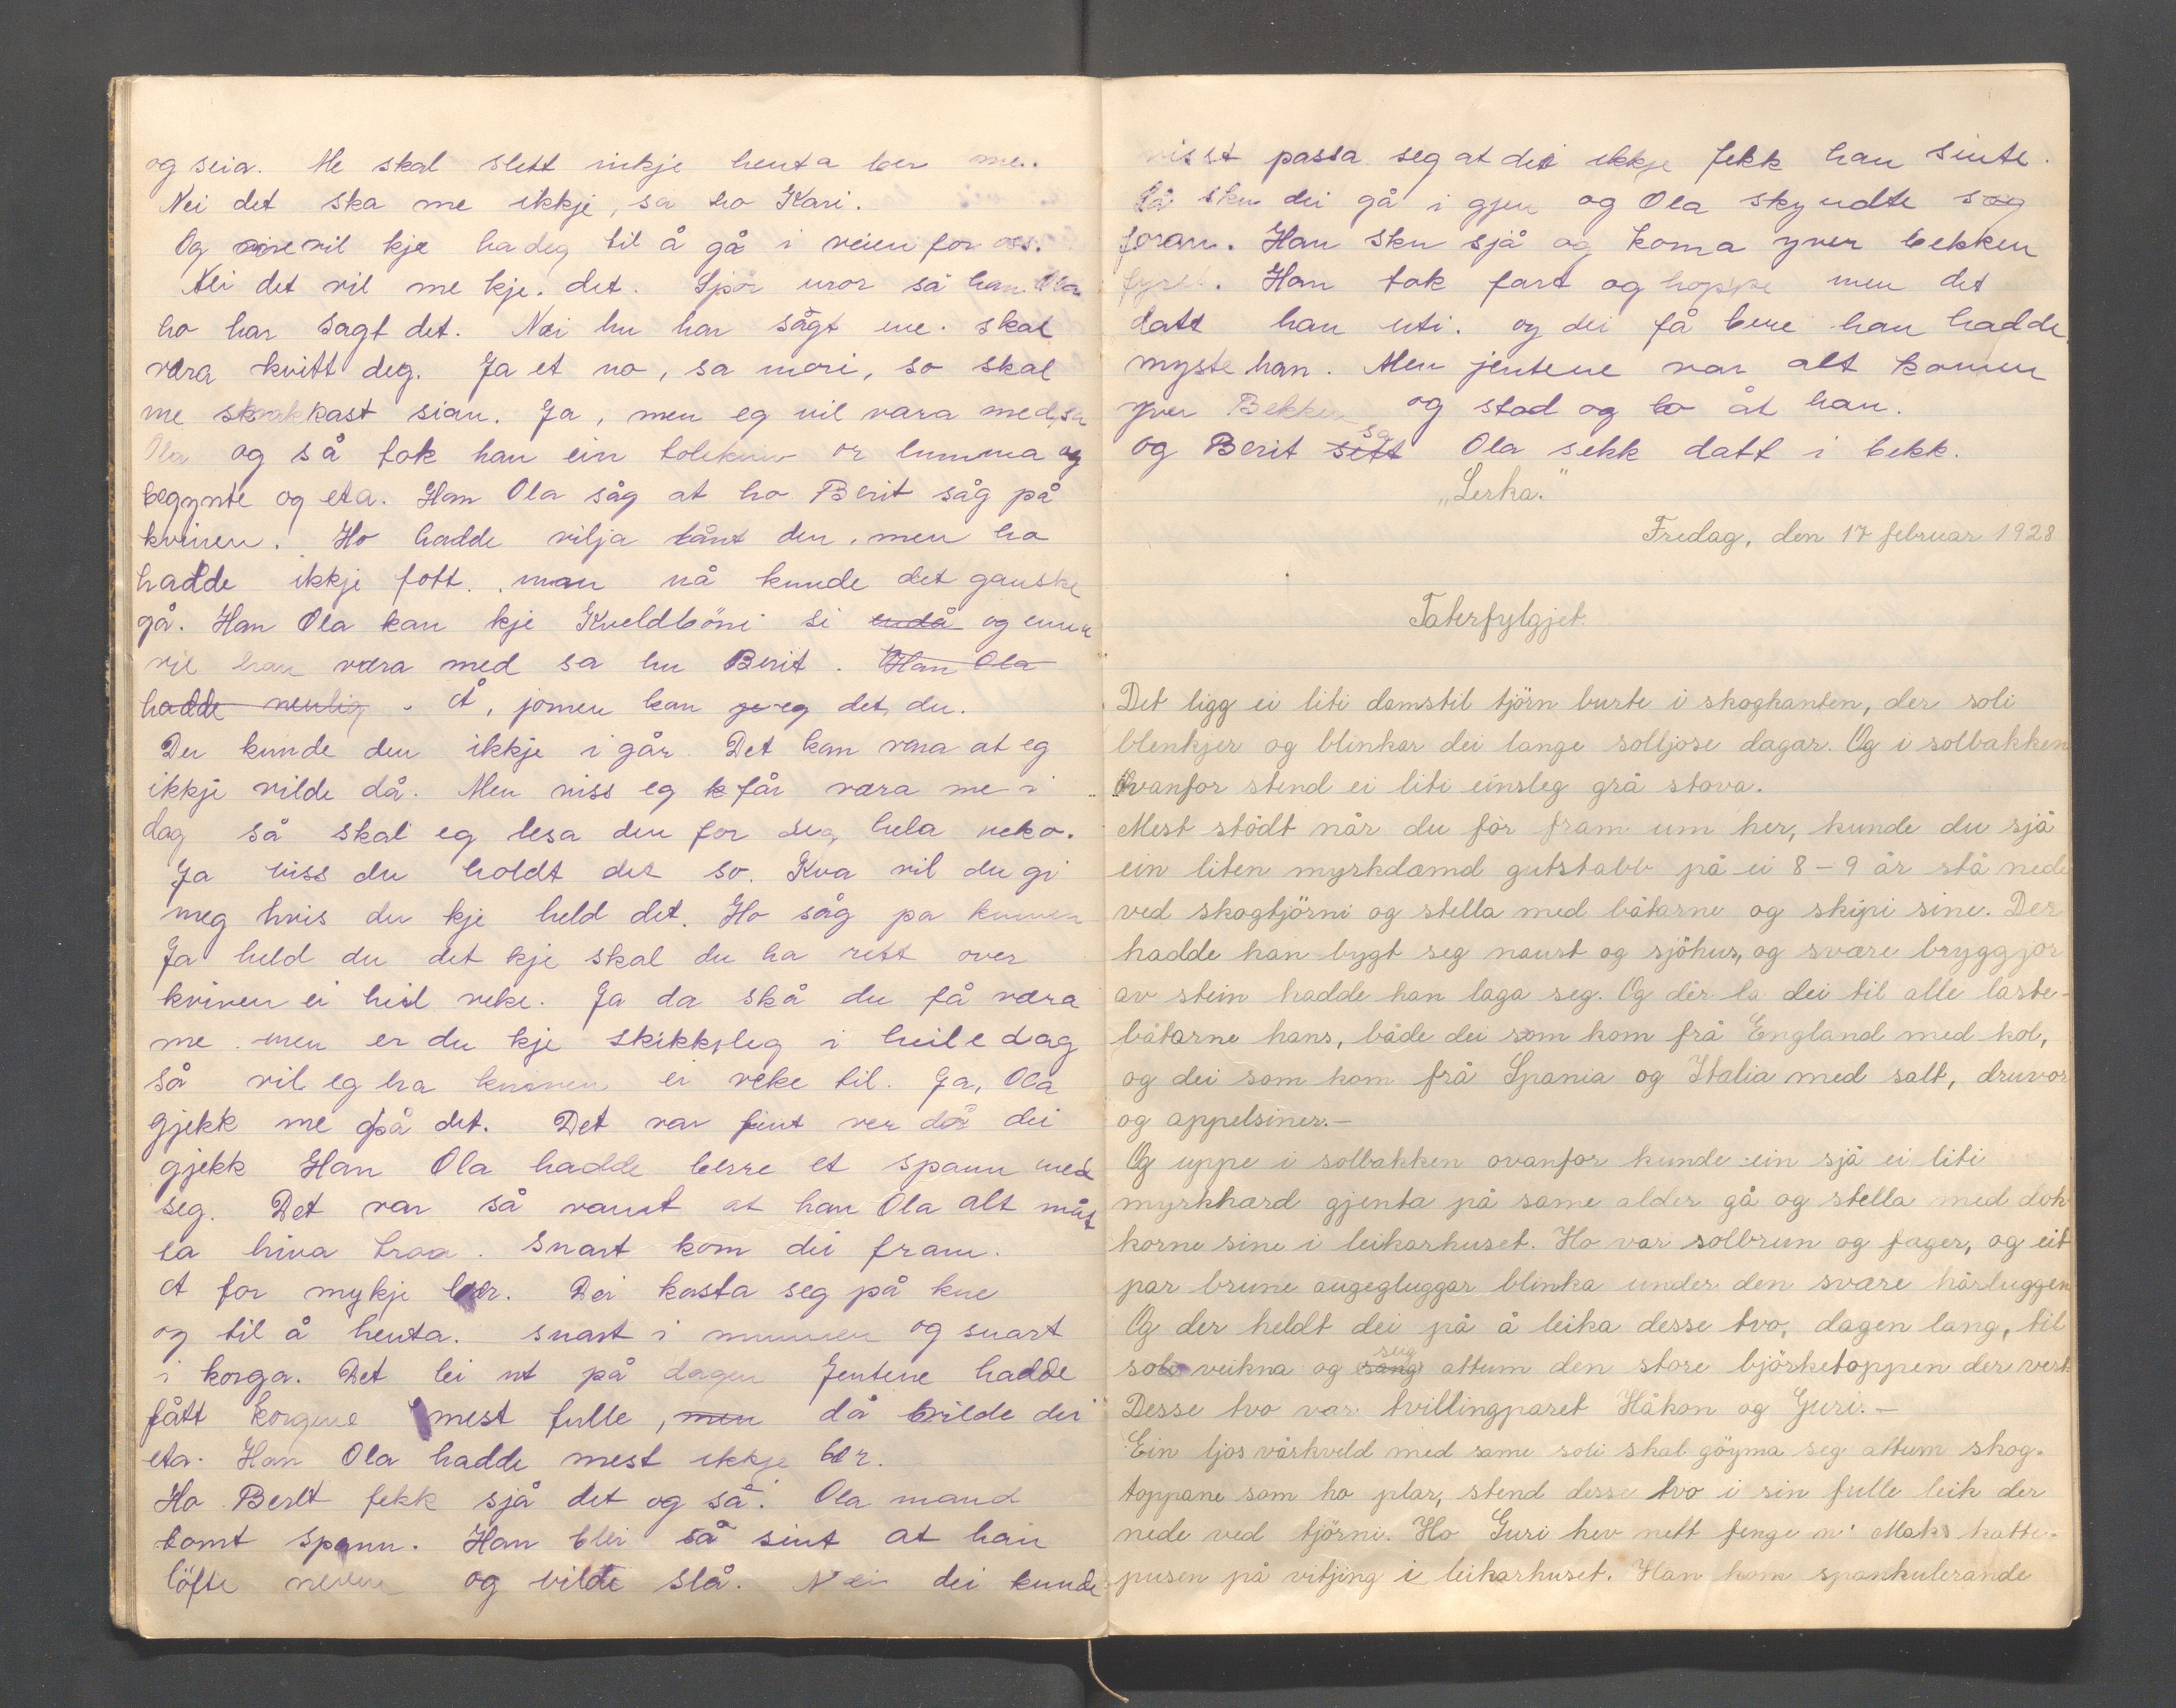 og seia. Me skal slett inkje henta ber me.
Nei det ska me ikkje, sa ho Kari.
Og me vil kje ha deg til å gå i veien for oss.
Nei det vil me kje. det. Spör mor så han Ola
ho har sagt det. Nei hu har sågt me. skal
væra kvitt deg. Ja et no, sa mori, so skal
me snakkast sian. Ja, men eg vil vara med, sa
Ola og så tok han ein tolekniv or lumma og
begynte og eta. Han Ola såg at ho Berit såg på
kniven. Ho hadde vilja lånt den. men ho
hadde ikkje fott. man nå kunde det ganske
gå. Han Ola kan kje Kveldböni si endå og enn
vil han væra med sa hu Berit. Han Ola
hadde nemlig. Å, jomen kan eg det, du.
Du kunde den ikkje i går. Det kan vera at eg
ikkje vilde då. Men viss eg k får væra me i
dag så skal eg lesa den for deg hela veko.
Ja viss du holdt det so. Kva vil du gi
meg hvis du kje held det. Ho såg pa kniven
Ja held du det kje skal du ha rett over
kniven ei hiel veke. Ja da skå du få væra
me. men er du kje skikkeleg i heile dag
så vil eg ha kniven ei veke til. Ja, Ola
gjekk me på det. Det var fint ver då dei
gjekk Han Ola hadde berre et spann med
seg. Det var så varmt at han Ola alt måt
ta hiva troa. Snart kom dei fram.
Å for mykje bær. Dei kasta seg på kne
og til å henta. snart i munnen og snart
i korga. Det lei ut på dagen Jentene hadde
fått korgene mest fulle, men då vilde dei
eta. Han Ola hadde mest ikkje bær.
Ho Berit fekk sjå det og så: Ola mand
tomt spann. Han blei så sint at han
löfte neven og vilde slå. Nei dei kunde
visst passa seg at dei ikkje fekk han sinte.
Så sku dei gå i gjen og Ola skyndte seg
foran. Han sku sjå og koma yver bekken
fyrst. Han tok fart og hoppe men det
datt han uti. og dei få bere han hadde
myste han. Men jentene var alt komen
yver Bekken og stod og lo åt han.
og Berit sett sa Ola sekk datt i bekk.
„Lerka."
Fredag, den 17 februar 1928
Taterfylgjet.
Det ligg ei liti damstil tjörn burte i skogkanten, der soli
blenkjer og blinkar dei lange solljose dagar. Og i solbakken
ovanfor stend ei liti einsleg grå stova.
Mest stödt når du fór fram um her, kunde du sjå
ein liten myrkdæmd gutstabb på ei 8 – 9 år stå nede
ved skogtjörni og stella med båtarne og skipi sine. Der
hadde han bygt seg naust og sjöhus, og svære bryggjor
av stein hadde han laga seg. Og dér la dei til alle laste-
båtarne hans, både dei som kom frå England med kol,
og dei som kom frå Spania og Italia med salt, druvor
og appelsiner.—
Og uppe i solbakken ovanfor kunde ein sjå ei liti
myrkhærd gjenta på same alder gå og stella med dok-
korne sine i leikarhuset. Ho var solbrun og fager, og eit
par brune augegluggar blinka under den svære hårluggen
Og der heldt dei på å leika desse tvo, dagen lang, til
soli veikna og sang seig attum den store björketoppen der vest.
Desse tvo var tvillingparet Håkon og Guri.—
Ein ljos vårkveld med same soli skal göyma seg attum skog-
toppane som ho plar, stend desse tvo i sin fulle leik der
nede ved tjörni. Ho Guri hev nett fenge n' Maks katte-
pusen på vitjing i leikarhuset. Han kom spankulerande